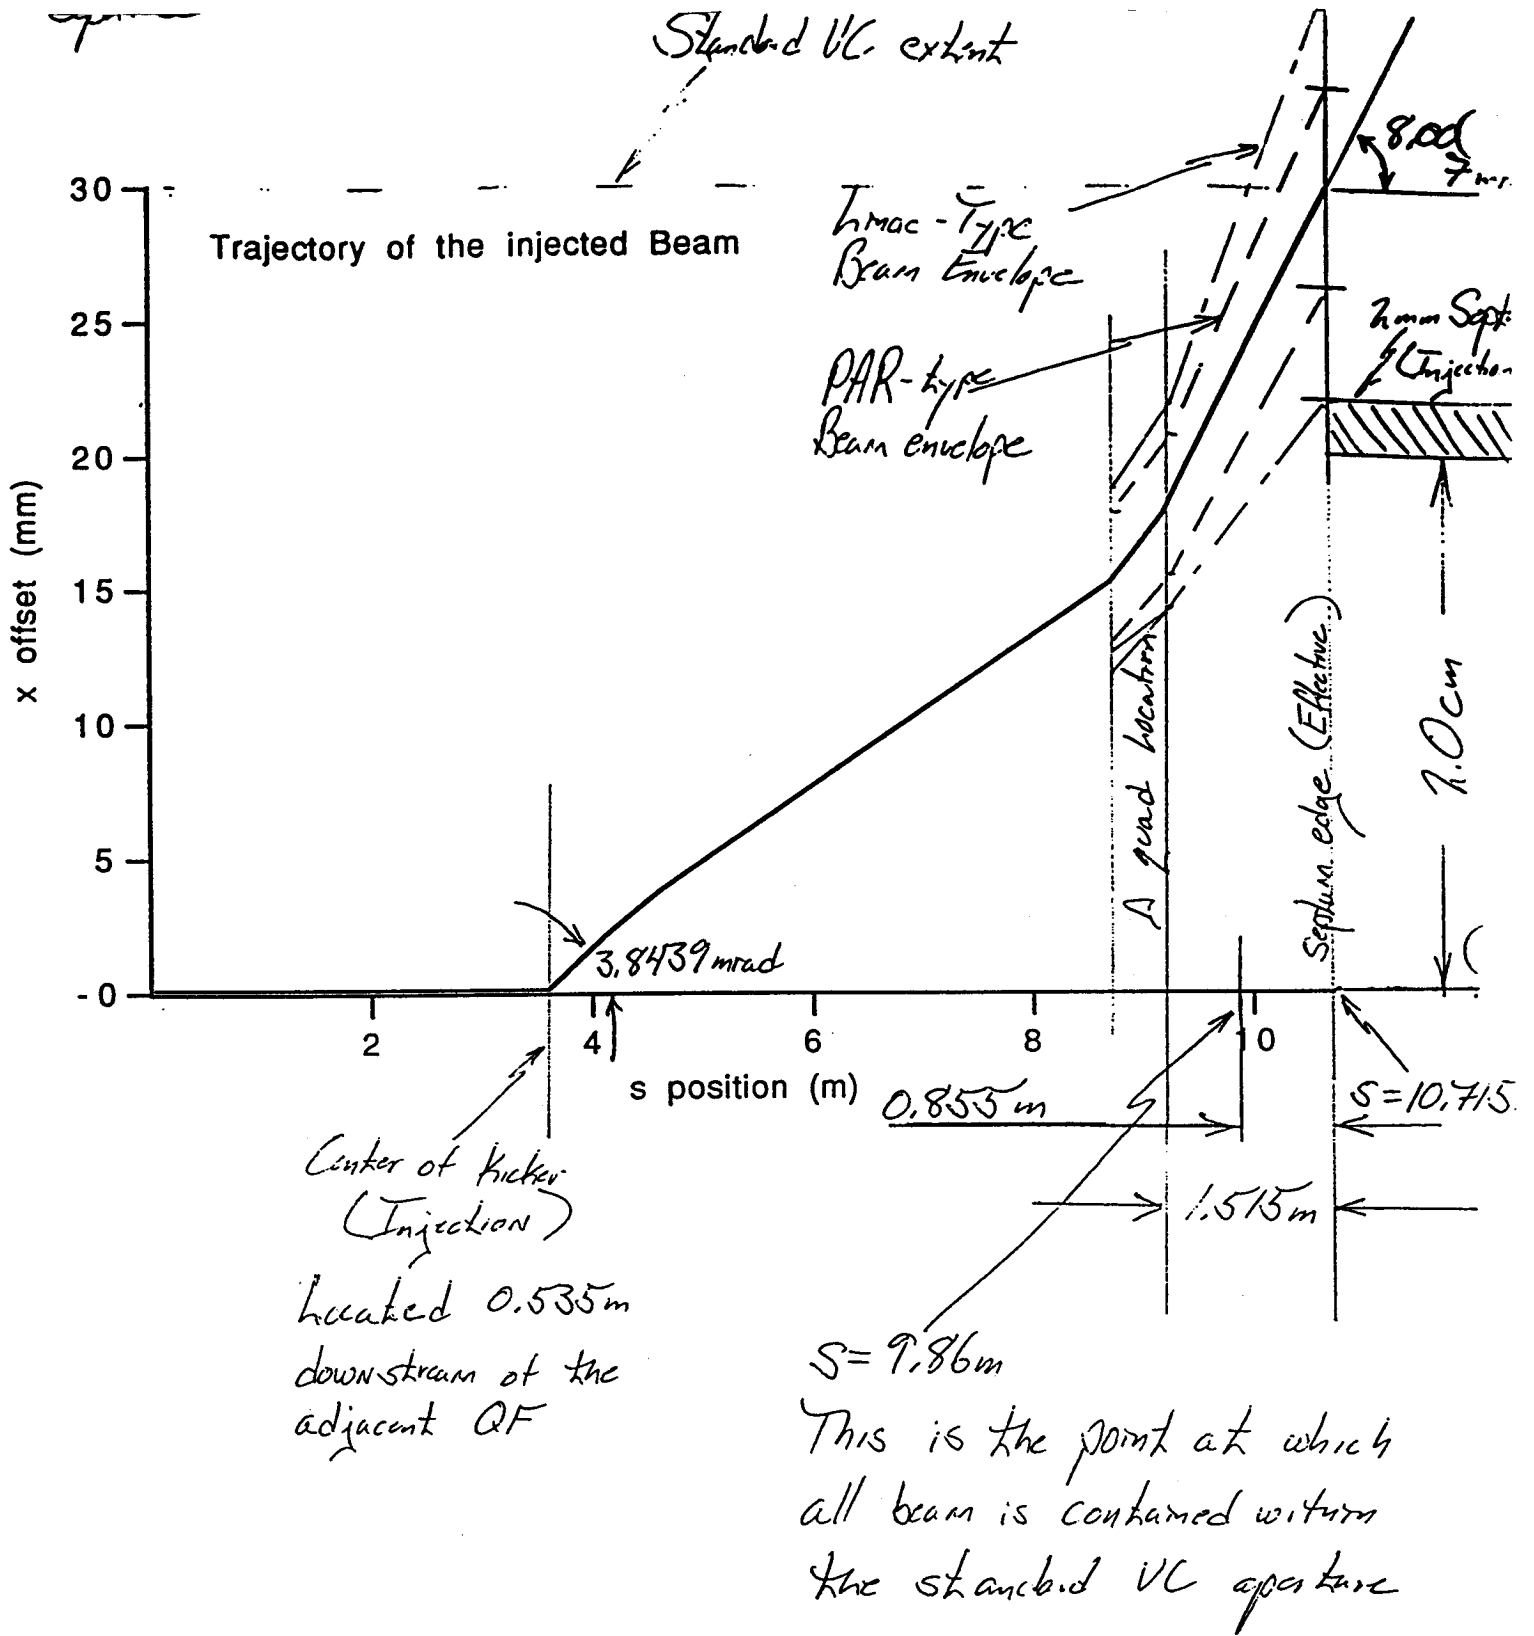 Standard VC. extent
8.00
7 mr.
30
Trajectory of the injected Beam
Linac-Type
Beam Envelope
25
2mm Sept
(Injection
PAR-type
Beam envelope
20
15
10
5
-0
x offset (mm)
A quad Location
Septum edge (Effective)
2.0cm
(
3.8439mrad
2
4
6
8
10
s position (m)
0.855m
s=10.715
1.515m
Center of Kicker
(Injection)
Located 0.535m
downstream of the
adjacent QF
S=9.86m
This is the point at which
all beam is contained within
the standard VC aperture